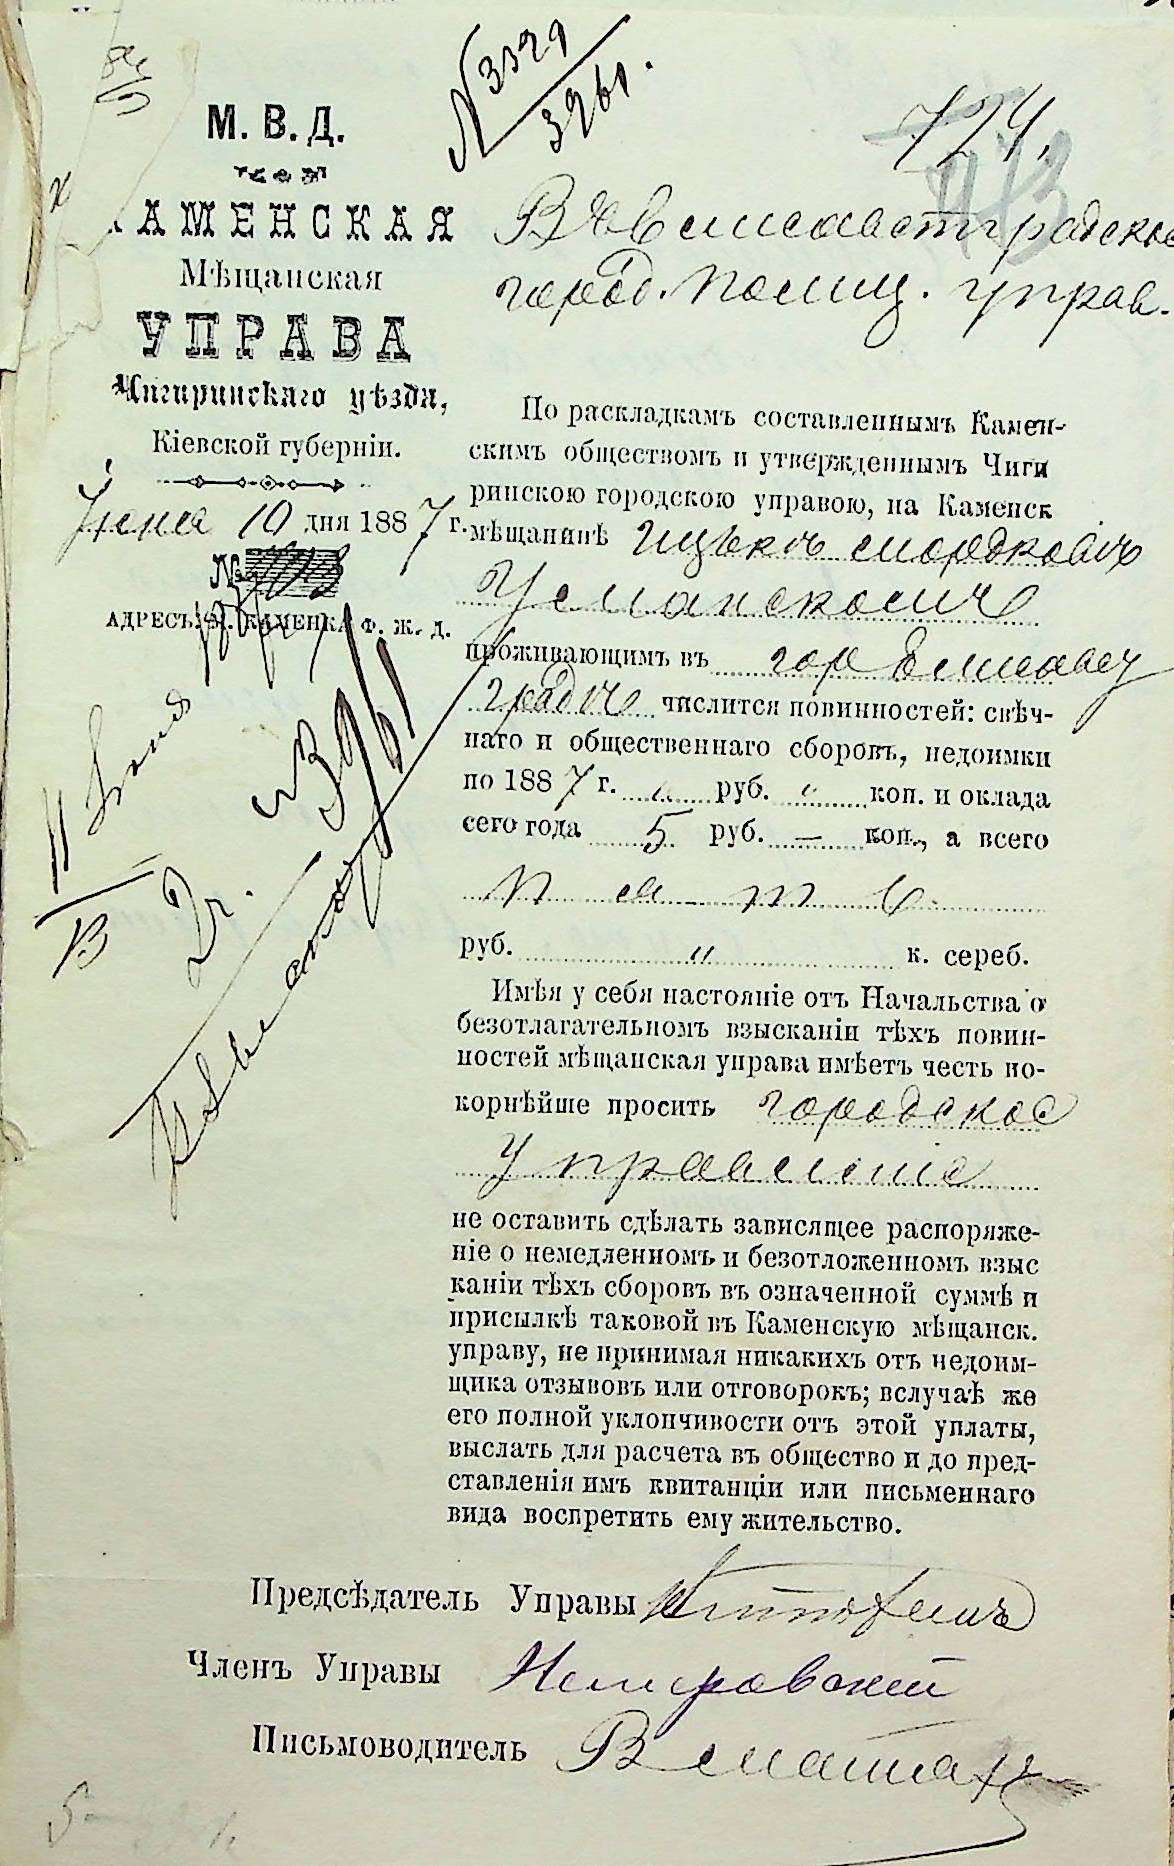 № 3329
3961.
724.
473
М. В. Д.
КАМЕНСКАЯ
Мѣщанская
УПРАВА
Чигиринскаго уѣзда,
Кіевской губерніи.
Іюня 10 дня 1887 г.
№
АДРЕСЪ: М. КАМЕНКА Ф. Ж. Д.
11 Іюня
В 2 ст.
3961
Въ Елисаветградское
город. Полиц. управ.
По раскладкамъ составленнымъ Камен-
скимъ обществомъ и утвержденнымъ Чиги
ринскою городскою управою, на Каменск
мѣщанинѣ Ицькѣ Мордковѣ
Уманском
проживающимъ въ гор Елисавет
градѣ числится повинностей: свѣч-
наго и общественнаго сборовъ, недоимки
по 1887 г. „ руб. „ коп. и оклада
сего года 5 руб. — коп., а всего
пять
руб. „ к. сереб.
Имѣя у себя настояніе отъ Начальства о
безотлагательномъ взысканіи тѣхъ повин-
ностей мѣщанская управа имѣетъ честь по-
корнѣйше просить городское
Управленіе
не оставить сдѣлать зависящее распоряже-
ніе о немедленномъ и безотложенномъ взыс
каніи тѣхъ сборовъ въ означенной суммѣ и
присылкѣ таковой въ Каменскую мѣщанск.
управу, не принимая никакихъ отъ недоим-
щика отзывовъ или отговорокъ; вслучаѣ же
его полной уклончивости отъ этой уплаты,
выслать для расчета въ общество и до пред-
ставленія имъ квитанціи или письменнаго
вида воспретить ему жительство.
Предсѣдатель Управы
Членъ Управы Немировскій
Письмоводитель